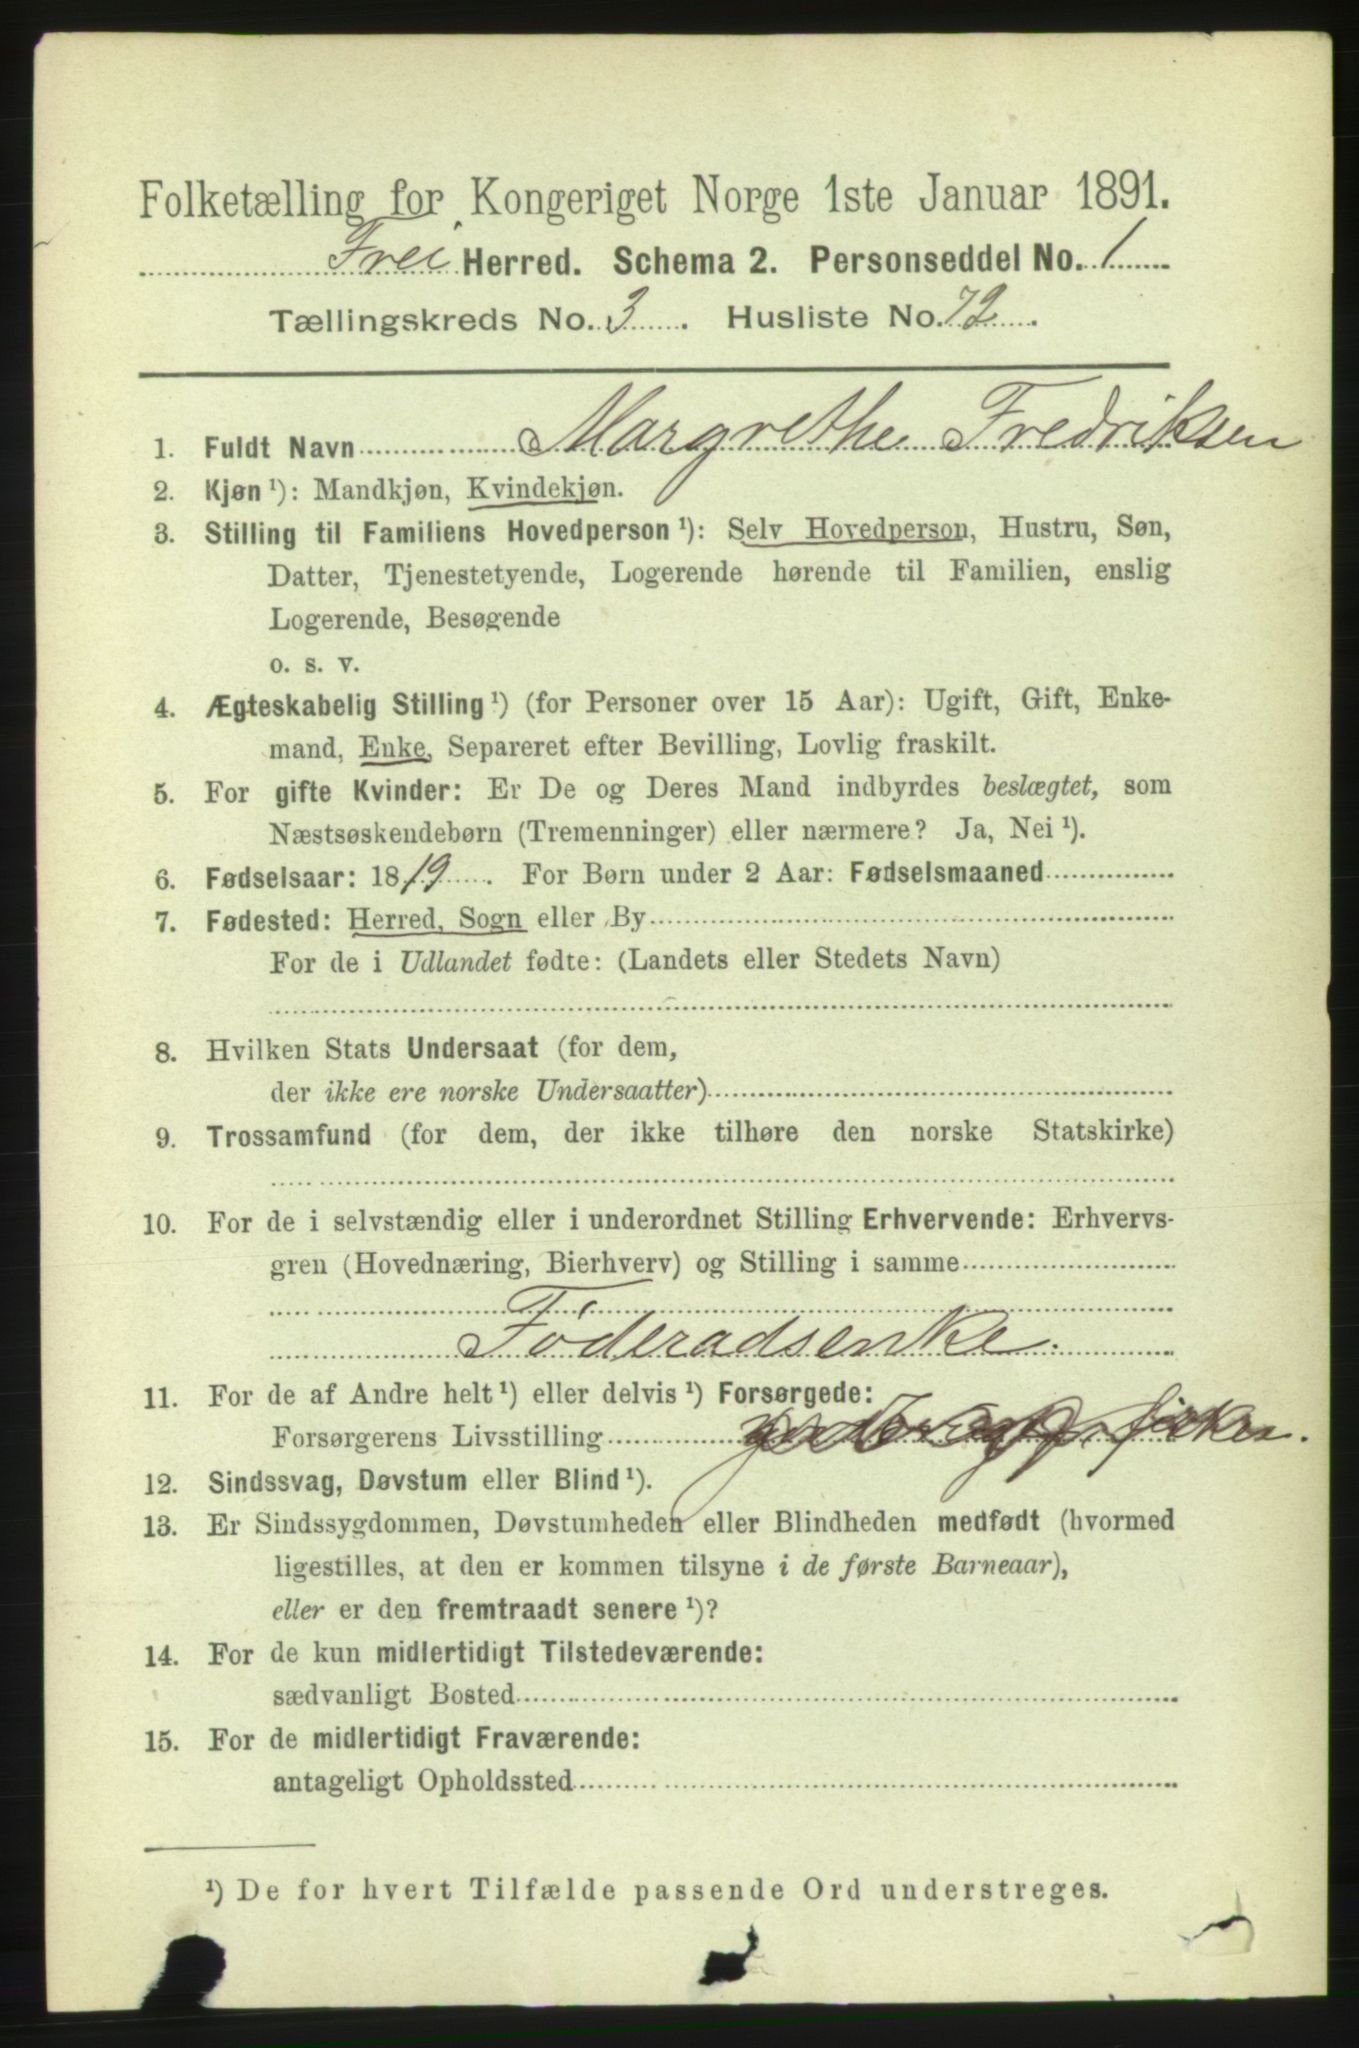 Folketælling for Kongeriget Norge 1ste Januar 1891.
Frei Herred. Schema 2. Personseddel No. 1
Tællingskreds No. 3. Husliste No. 72.
1. Fuldt Navn Margrethe Fredriksen
2. Kjøn ¹): Mandkjøn, Kvindekjøn.
3. Stilling til Familiens Hovedperson ¹): Selv Hovedperson, Hustru, Søn,
Datter, Tjenestetyende, Logerende hørende til Familien, enslig
Logerende, Besøgende
o. s. v.
4. Ægteskabelig Stilling ¹) (for Personer over 15 Aar): Ugift, Gift, Enke-
mand, Enke, Separeret efter Bevilling, Lovlig fraskilt.
5. For gifte Kvinder: Er De og Deres Mand indbyrdes beslægtet, som
Næstsøskendebørn (Tremenninger) eller nærmere? Ja, Nei ¹).
6. Fødselsaar: 1819. For Børn under 2 Aar: Fødselsmaaned
7. Fødested: Herred, Sogn eller By
For de i Udlandet fødte: (Landets eller Stedets Navn)
8. Hvilken Stats Undersaat (for dem,
der ikke ere norske Undersaatter)
9. Trossamfund (for dem, der ikke tilhøre den norske Statskirke)
10. For de i selvstændig eller i underordnet Stilling Erhvervende: Erhvervs-
gren (Hovednæring, Bierhverv) og Stilling i samme
Föderadsenke.
11. For de af Andre helt ¹) eller delvis ¹) Forsørgede:
Forsørgerens Livsstilling
12. Sindssvag, Døvstum eller Blind ¹).
13. Er Sindssygdommen, Døvstumheden eller Blindheden medfødt (hvormed
ligestilles, at den er kommen tilsyne i de første Barneaar),
eller er den fremtraadt senere ¹)?
14. For de kun midlertidigt Tilstedeværende:
sædvanligt Bosted
15. For de midlertidigt Fraværende:
antageligt Opholdssted
¹) De for hvert Tilfælde passende Ord understreges.